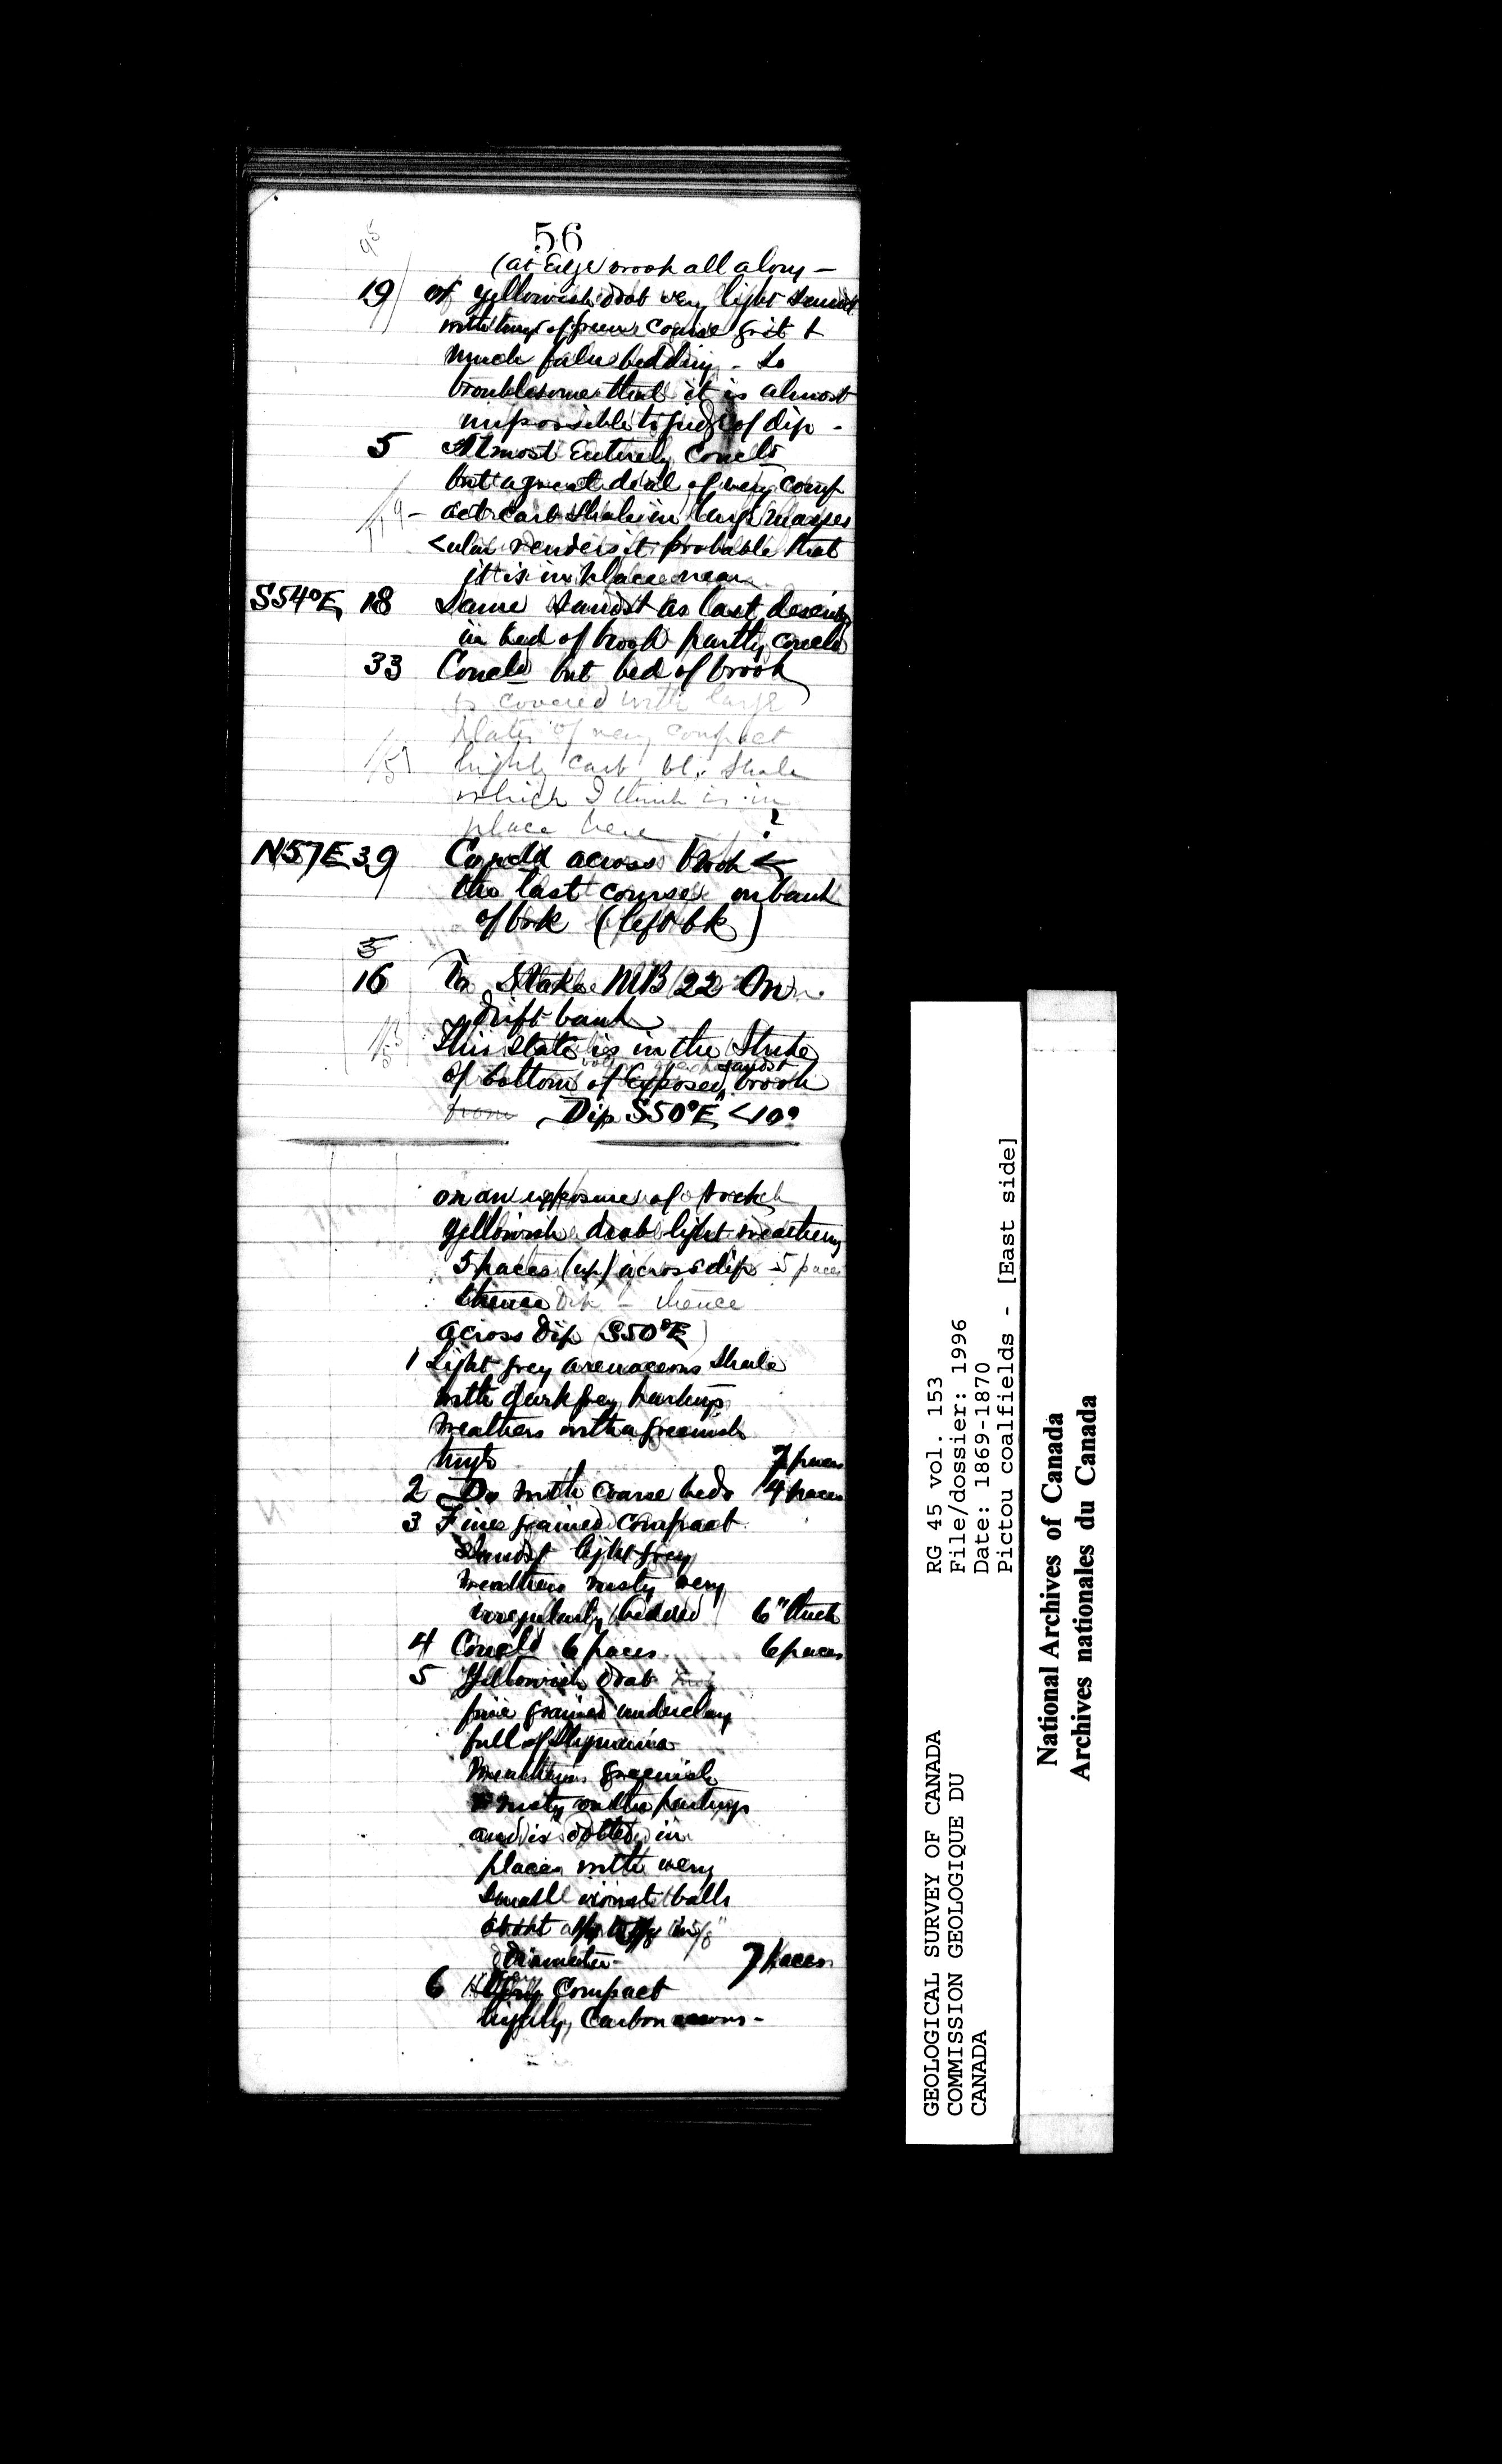 56
95
(at Edge brook all along —
19 of yellowish drab very light sandst
with beds of fine coarse grit &
much false bedding - so
troublesome that it is almost
impossible to judge of dip -
5 Almost Entirely Conceld
but a great deal of very comp
119 - act carb shale in large masses
<ular renders it probable that
it is in place near
S54°E 18 Same sandst as last
in bed of brook partly conceld
33 Conceld but bed of brook
is covered with large
plates of very compact
highly carb bl. shale
which I think is in
place here - ?
N57E 39 Conceld across brook <
the last course on bank
of brk (left bk)
5
16 To Stake MB 22 On
drift bank
This stake is in the Strike
of bottom of exposed sandst brook
from Dip S50°E <10°
on an exposure of
yellowish drab light weathering
5 paces (up) across dip - 5 paces
thence Dip - thence
across Dip (S50°E)
1 Light grey arenaceous Shale
with dark grey partings
weathers with a greenish
tinge 7 paces
2 Do with coarse beds 4 paces
3 Fine grained Compact
sandst light grey
weathers rusty very
irregularly bedded 6" thick
4 Conceld 6 paces 6 paces
5 Yellowish drab
fine grained underclay
full of Stigmaria
weathers greenish
rusty on the partings
and is dotted in
places with very
small ironst balls
about in 5/8"
diameter - 7 paces
6 Very Compact
highly Carbonaceous -
GEOLOGICAL SURVEY OF CANADA
COMMISSION GEOLOGIQUE DU
CANADA
RG 45 vol. 153
File/dossier: 1996
Date: 1869-1870
Pictou coalfields - [East side]
National Archives of Canada
Archives nationales du Canada